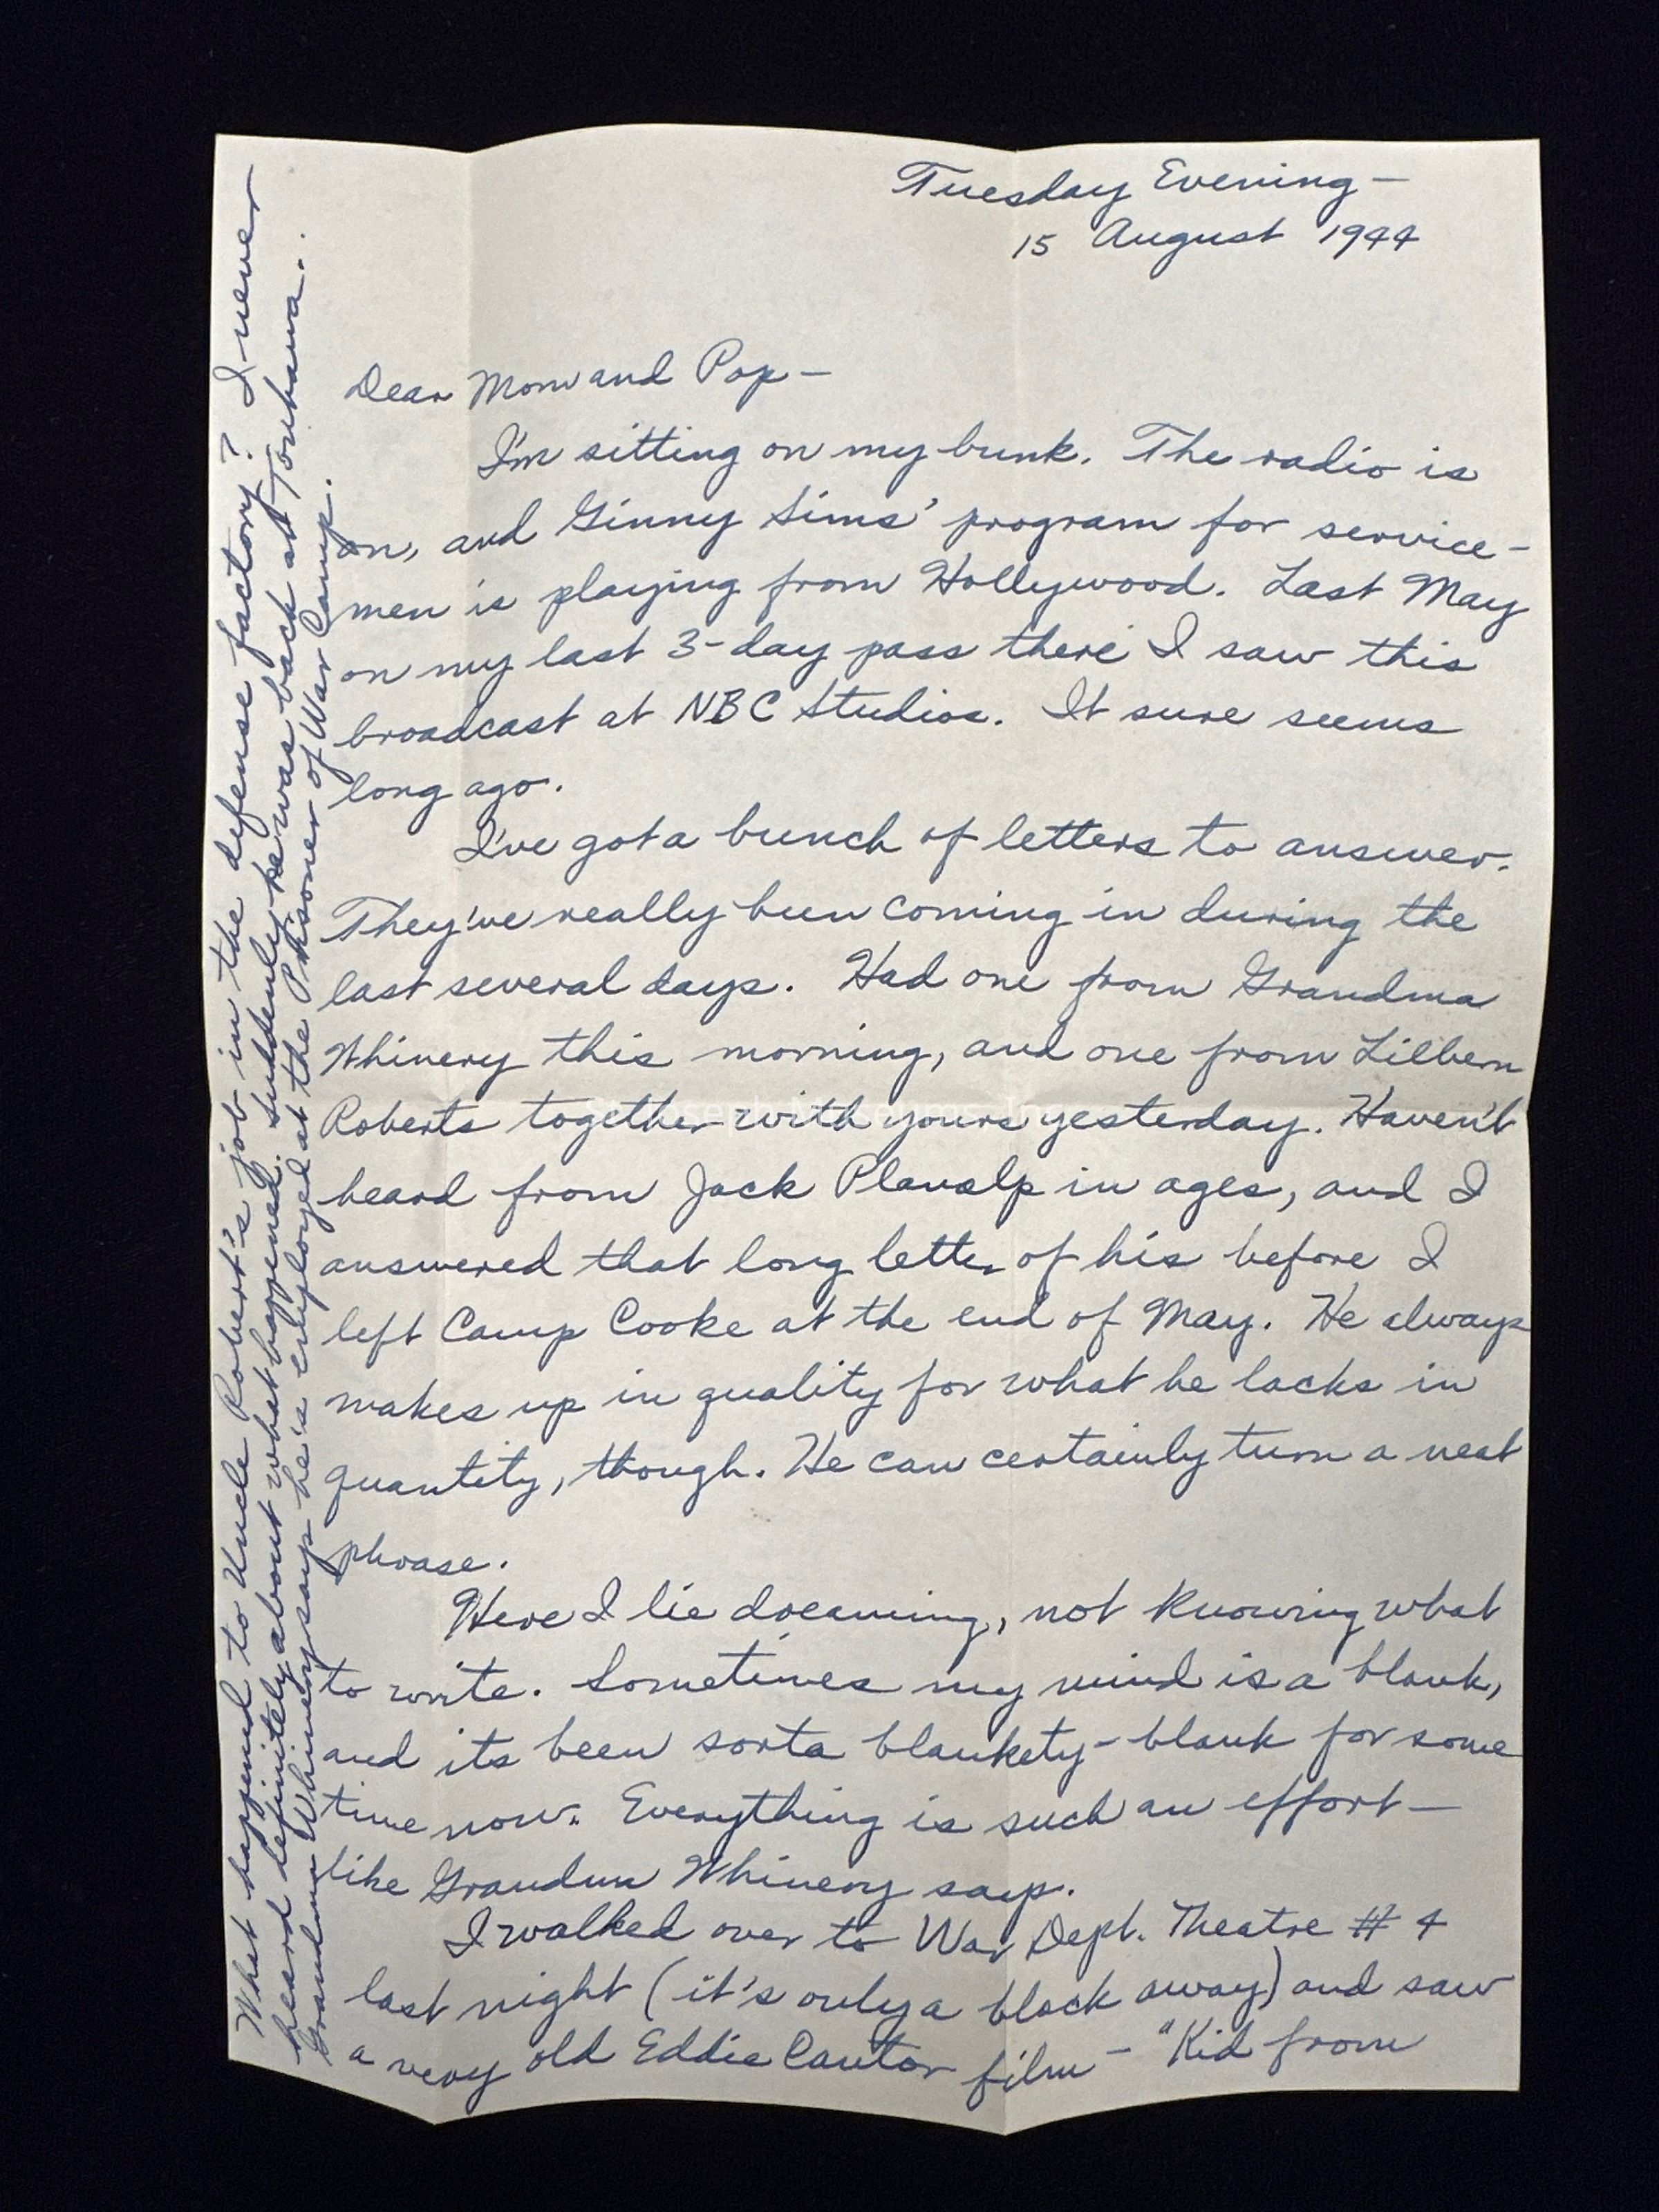 Tuesday Evening—
15 August 1944
Dear Mom and Pop—
I'm sitting on my bunk. The radio is
on, and Ginny Sims' program for service-
men is playing from Hollywood. Last May
on my last 3-day pass there I saw this
broadcast at NBC Studios. It sure seems
long ago.
I've got a bunch of letters to answer.
They've really been coming in during the
last several days. Had one from Grandma
Whinery this morning, and one from Lilbern
Roberts together with yours yesterday. Haven't
heard from Jack Planalp in ages, and I
answered that long letter of his before I
left Camp Cooke at the end of May. He always
makes up in quality for what he lacks in
quantity, though. He can certainly turn a neat
phrase.
Here I lie dreaming, not knowing what
to write. Sometimes my mind is a blank,
and its been sorta blankety-blank for some
time now. Everything is such an effort—
like Grandma Whinery says.
I walked over to War Dept. Theatre #4
last night (it's only a block away) and saw
a very old Eddie Cantor film— "Kid from
What happened to Uncle Robert's job in the defense factory? I never
heard definitely about what happened. Suddenly he was back at Tonkawa.
Grandma Whinery says he's employed at the Prisoner of War Camp.